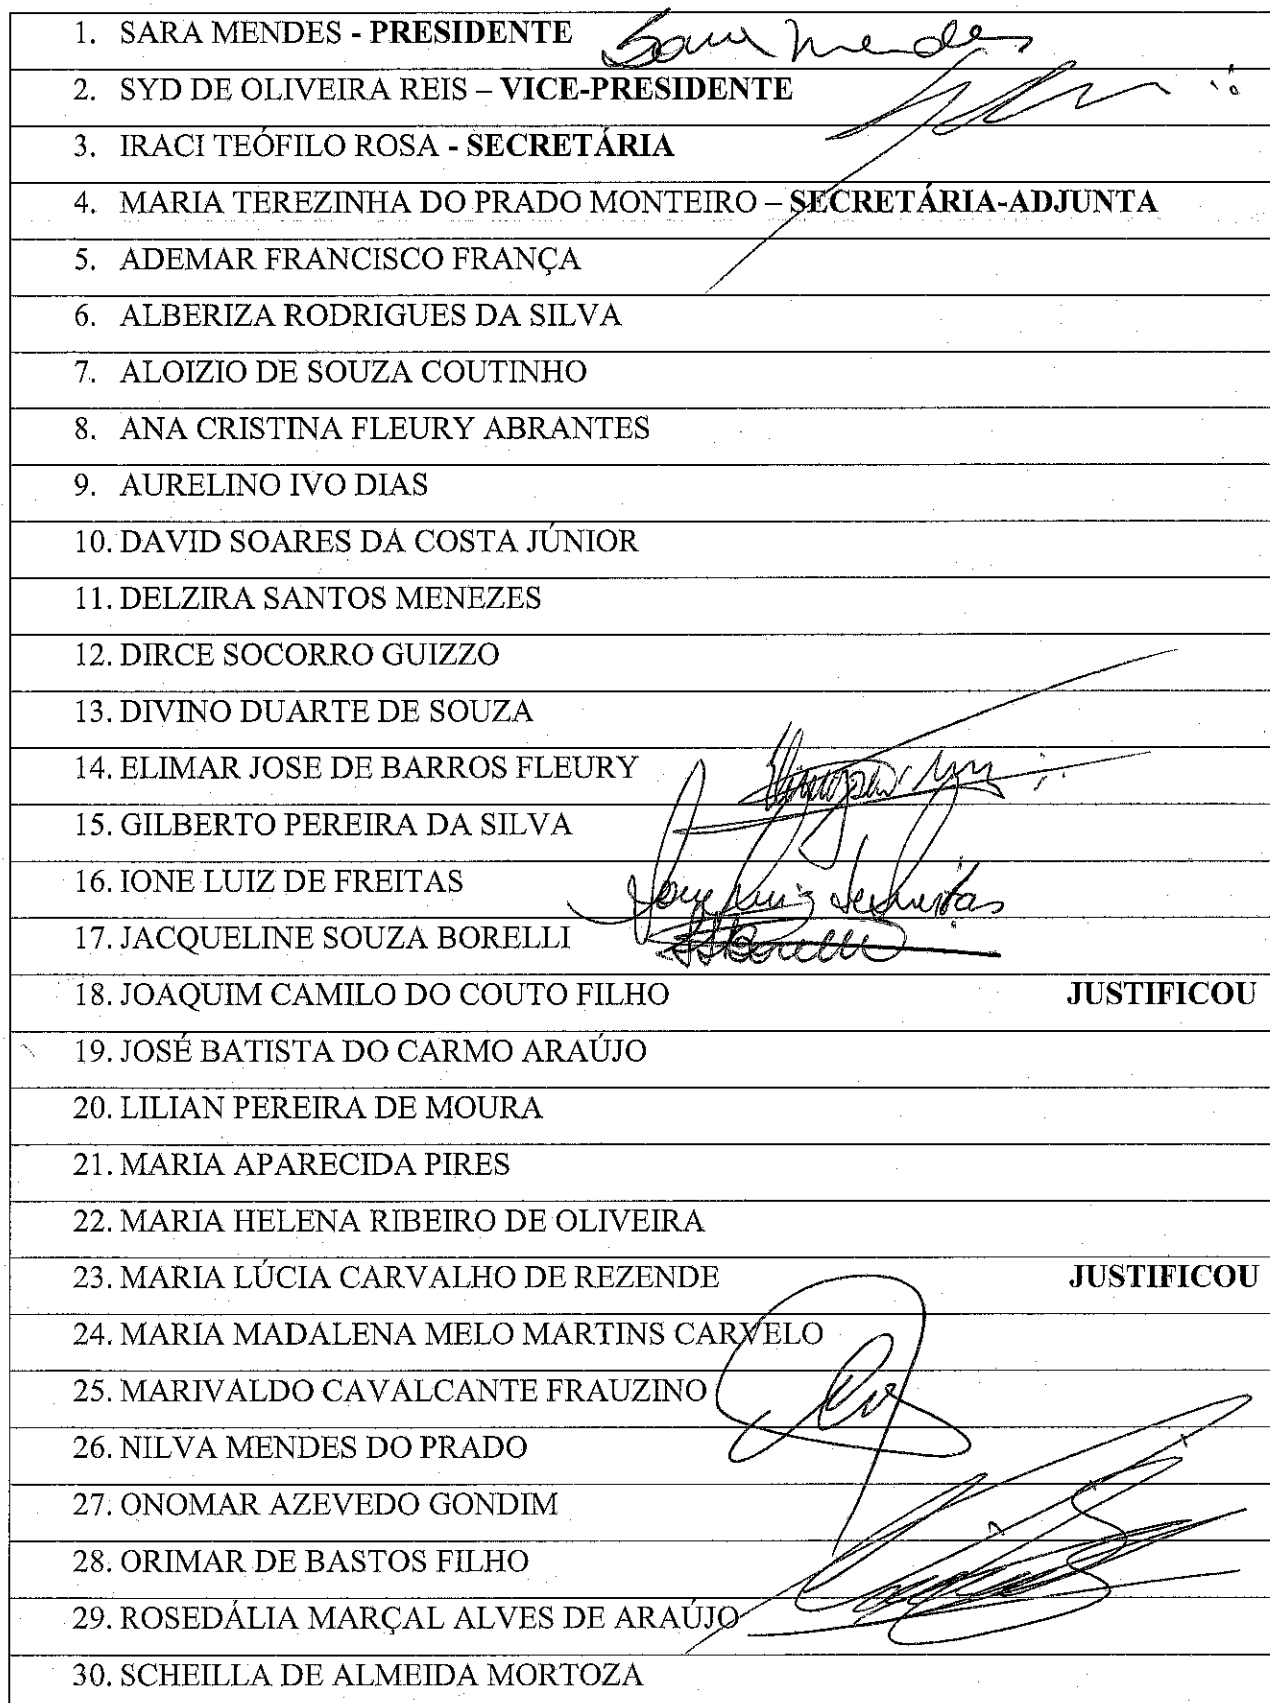 1. SARA MENDES - PRESIDENTE Sara Mendes
2. SYD DE OLIVEIRA REIS – VICE-PRESIDENTE
3. IRACI TEÓFILO ROSA - SECRETÁRIA
4. MARIA TEREZINHA DO PRADO MONTEIRO – SECRETÁRIA-ADJUNTA
5. ADEMAR FRANCISCO FRANÇA
6. ALBERIZA RODRIGUES DA SILVA
7. ALOIZIO DE SOUZA COUTINHO
8. ANA CRISTINA FLEURY ABRANTES
9. AURELINO IVO DIAS
10. DAVID SOARES DA COSTA JÚNIOR
11. DELZIRA SANTOS MENEZES
12. DIRCE SOCORRO GUIZZO
13. DIVINO DUARTE DE SOUZA
14. ELIMAR JOSE DE BARROS FLEURY
15. GILBERTO PEREIRA DA SILVA
16. IONE LUIZ DE FREITAS Ione Luiz de Freitas
17. JACQUELINE SOUZA BORELLI JSBorelli
18. JOAQUIM CAMILO DO COUTO FILHO JUSTIFICOU
19. JOSÉ BATISTA DO CARMO ARAÚJO
20. LILIAN PEREIRA DE MOURA
21. MARIA APARECIDA PIRES
22. MARIA HELENA RIBEIRO DE OLIVEIRA
23. MARIA LÚCIA CARVALHO DE REZENDE JUSTIFICOU
24. MARIA MADALENA MELO MARTINS CARVELO
25. MARIVALDO CAVALCANTE FRAUZINO
26. NILVA MENDES DO PRADO
27. ONOMAR AZEVEDO GONDIM
28. ORIMAR DE BASTOS FILHO
29. ROSEDÁLIA MARÇAL ALVES DE ARAÚJO
30. SCHEILLA DE ALMEIDA MORTOZA